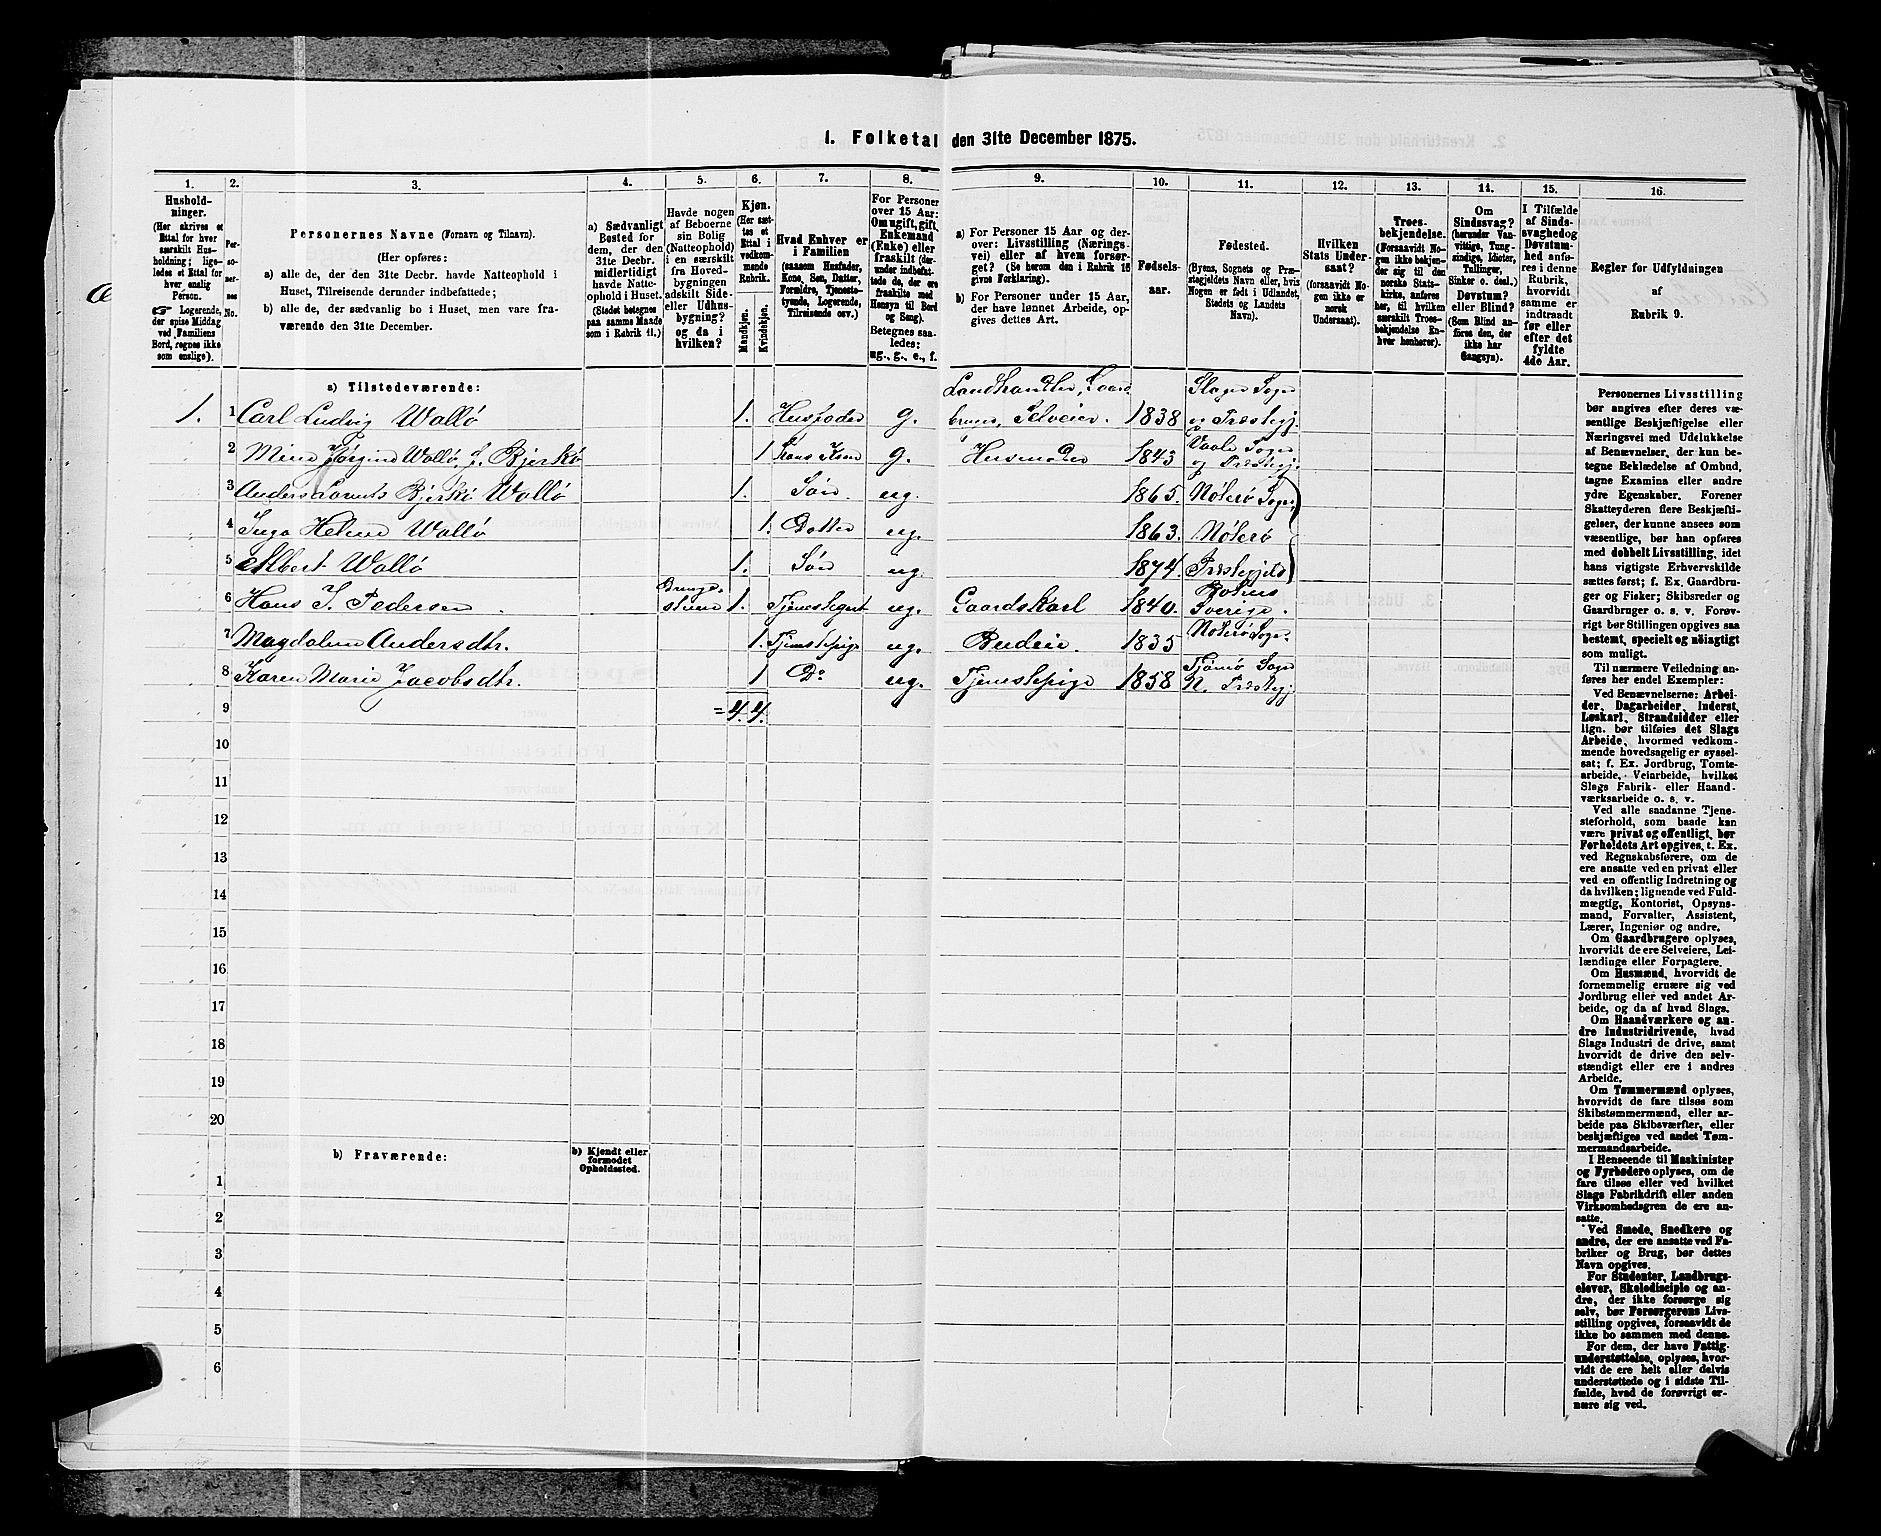 1. Folketal den 31te December 1875.
1. 2. 3. 4. 5. 6. 7. 8. 9. 10. 11. 12. 13. 14. 15. 16.
Hushold-
ninger.
(Her skrives et
Ettal for hver
særskilt Hus-
holdning; lige-
ledes et Ettal for
hver enslig
Person.
☞ Logerende,
der spise Middag
ved Familiens
Bord, regnes ikke
som enslige).
Per-
so-
ner-
nes
No.
Personernes Navne (Fornavn og Tilnavn).
(Her opføres:
a) alle de, der den 31te Decbr. havde Natteophold i
Huset, Tilreisende derunder indbefattede;
b) alle de, der sædvanlig bo i Huset, men vare fra-
værende den 31te December.
a) Sædvanligt
Bosted for
dem, der den
31te Decbr.
midlertidigt
havde Natte-
ophold i Huset.
(Stedet betegnes
paa samme Maade
som i Rubrik 11.)
Havde nogen
af Beboerne
sin Bolig
(Natteophold)
i en særskilt
fra Hoved-
bygningen
adskilt Side-
eller Udhus-
bygning?
og da i
hvilken?
Kjøn.
(Her sæt-
tes et
Ettal i
vedkom-
mende
Rubrik.
Mandkjøn.
Kvindekjøn.
Hvad Enhver er
i Familien
(saasom Husfader,
Kone, Søn, Datter,
Forældre, Tjeneste-
tyende, Logerende,
Tilreisende osv.)
For Personer
over 15 Aar:
Om ugift, gift,
Enkemand
(Enke) eller
fraskilt (der-
under indbefat-
tede de, der ere
fraskilte med
Hensyn til Bord
og Seng).
Betegnes saa-
ledes:
ug., g., e., f.
a) For Personer 15 Aar og der-
over: Livsstilling (Nærings-
vei) eller af hvem forsør-
get? (Se herom den i Rubrik 16
givne Forklaring).
b) For Personer under 15 Aar,
der have lønnet Arbeide, op-
gives dettes Art.
Fødsels-
aar.
Fødested.
(Byens, Sognets og Præ-
stegjeldets Navn eller, hvis
Nogen er født i Udlandet,
Stedets og Landets
Navn).
Hvilken
Stats Under-
saat?
(forsaavidt No-
gen ikke er
norsk
Undersaat).
Troes-
bekjendelse.
(Forsaavidt No-
gen ikke bekjen-
der sig til den
norske Stats-
kirke, anføres
her, til hvilken
særskilt Troes-
bekjendelse En-
hver henhører).
Om
Sindssvag?
(herunder Van-
vittige, Tung-
sindige, Idioter,
Tullinger,
Sinker o. desl.)
Døvstum?
eller Blind?
(Som Blind an-
føres den, der
ikke har
Gangsyn).
I Tilfælde
af Sinds-
svaghed og
Døvstum-
hed anfø-
res i denne
Rubrik,
hvorvidt
samme er
indtraadt
før eller
efter det
fyldte
4de Aar.
Regler for Udfyldningen
af
Rubrik 9.
a) Tilstedeværende:
1. 1 Carl Ludvig Wallø 1. Husfader g. Landhandler, Gaard-
bruger, Selveier. 1838 Slagn Sogn
og Præstegj.
2 Mine Jørgine Wallø, f. Bjerkø 1 Hans Kone g. Husmoder 1843 Vaale Sogn
og Præstegj.
3 Anders Lorents Bjerkø Wallø 1. Søn. ug. 1865. Nøterø Sogn,
4 Inga Helene Wallø 1. Datter ug. 1863. Nøterø
5 Albert Wallø 1. Søn ug. 1874. Præstegjeld
6 Hans J. Pedersen 1. Tjenestegut ug. Gaardskarl 1840. Sverige.
7 Magdalene Andersdtr. 1. Tjenestepige ug. Budeie. 1835 Nøterø Sogn.
8 Karen Marie Jacobsdtr. 1 Do ug. Tjenestepige 1858 Tjømø Sogn
N. Præstegj.
9 = 4. 4.
10
11
12
13
14
15
16
17
18
19
20
b) Fraværende:
b) Kjendt eller
formodet
Opholdssted.
1
2
3
4
5
6
Personernes Livsstilling
bør angives efter deres væ-
sentlige Beskjæftigelse eller
Næringsvei med Udelukkelse
af Benævnelser, der kun be-
tegne Beklædelse af Ombud,
tagne Examina eller andre
ydre Egenskaber. Forener
Skatteyderen flere Beskjæfti-
gelser, der kunne ansees som
væsentlige, bør han opføres
med dobbelt Livsstilling, idet
hans vigtigste Erhvervskilde
sættes først; f. Ex. Gaardbru-
ger og Fisker; Skibsreder og
Gaardbruger o. s. v. Forøv-
rigt bør Stillingen opgives saa
bestemt, specielt og nøiagtigt
som muligt.
Til nærmere Veiledning an-
føres her endel Exempler:
Ved Benævnelserne: Arbei-
der, Dagarbeider, Inderst,
Løskarl, Strandsidder eller
lign. bør tilføies det Slags
Arbeide, hvormed vedkom-
mende hovedsagelig er syssel-
sat; f. Ex. Jordbrug, Tomte-
arbeide, Veiarbeide, hvilket
Slags Fabrik- eller Haand-
værksarbeide o. s. v.
Ved alle saadanne Tjene-
steforhold, som baade kan
være privat og offentligt, bør
Forholdets Art opgives, t. Ex.
ved Regnskabsførere, om de
ere ansatte ved en privat eller
ved en offentlig Indretning og
da hvilken; lignende ved Fuld-
mægtig, Kontorist, Opsyns-
mand, Forvalter, Assistent,
Lærer, Ingeniør og andre.
Om Gaardbrugere oplyses,
hvorvidt de ere Selveiere, Lei-
lændinge eller Forpagtere.
Om Husmænd, hvorvidt de
fornemmelig ernære sig ved
Jordbrug eller ved andet Ar-
beide, og da af hvad Slags.
Om Haandværkere og an-
dre Industridrivende, hvad
Slags Industri de drive, samt
hvorvidt de drive den selv-
stændigt eller ere i andres
Arbeide.
Om Tømmermænd oplyses,
hvorvidt de fare tilsøs som
Skibstømmermænd, eller ar-
beide paa Skibsværfter, eller
beskjæftiges ved andet Tøm-
mermandsarbeide.
I Henseende til Maskinister
og Fyrbødere oplyses, om de
fare tilsøs eller ved hvilket
Slags Fabrikdrift eller anden
Virksomhedsgren de ere an-
satte.
Ved Smede, Snedkere og
andre, der ere ansatte ved Fa-
briker og Brug, bør dettes
Navn opgives.
For Studenter, Landbrugs-
elever, Skoledisciple og an-
dre, der ikke forsørge sig
selv, bør Forsørgerens Livs-
stilling opgives, forsaavidt de
ikke bo sammen med denne.
For dem, der have Fattig-
understøttelse, oplyses, hvor-
vidt de ere helt eller delvis
understøttede og i sidste Til-
fælde, hvad de forøvrigt er-
nære sig ved.